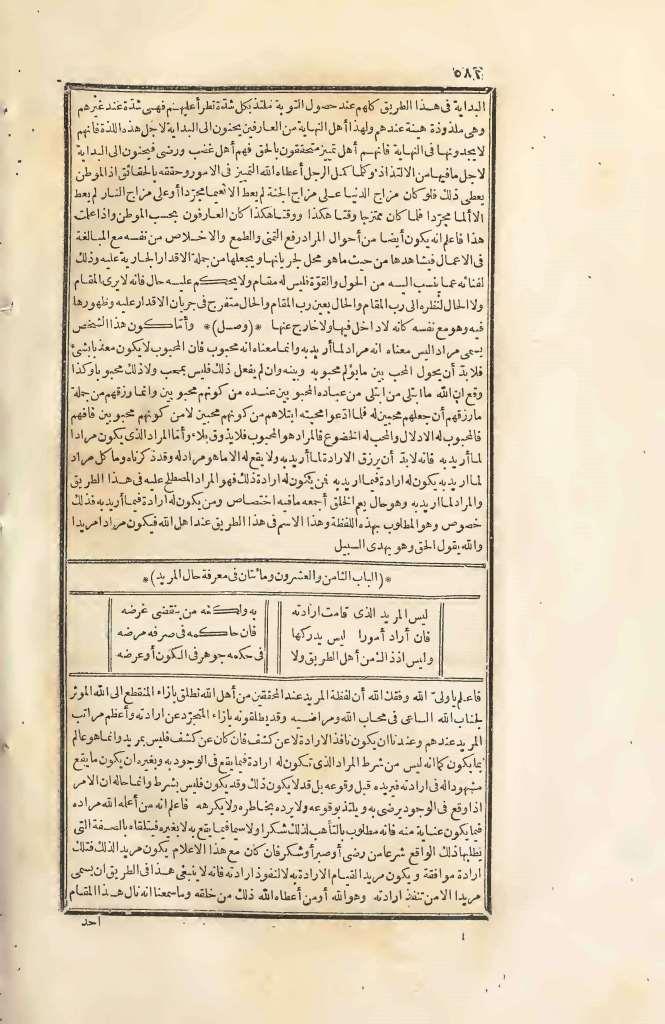 ٥٨٢
البداية فى هذا الطريق كلهم عند حصول التوبة ملتذ بكل شدّة تطرأ عليهم فهى شدّة عند غيرهم
وهى ملذوذة هينة عندهم ولهذا أهل النهاية من العارفين يحنون الى البداية لاجل هذه اللذة فانهم
لا يجدونها فى النهاية فانهم أهل تمييز متحققون بالحق فهم أهل غضب ورضى فيحنون الى البداية
لاجل ما فيها من الالتذاذ وكلما كمل الرجل أعطاه الله التمييز فى الامور وحققه بالحقائق اذ الموطن
يعطى ذلك فلو كان مزاج الدنيا على مزاج الجنة لم يعط الا نعيما مجرّدا أو على مزاج النار لم يعط
الا ألما مجرّدا فلما كان ممتزجا وقتا هكذا ووقتا هكذا كان العارفون بحسب الموطن واذا علمت
هذا فاعلم انه يكون أيضا من أحوال المراد رفع التمنى والطمع والاخلاص من نفسه مع المبالغة
فى الاعمال فيشاهدها من حيث ما هو محل لجريانها ويجعلها من جملة الاقدار الجارية عليه وذلك
لفنائه عما ينسب اليه من الحول والقوّة فليس له مقام ولا يحكم عليه حال فانه لا يرى المقام
ولا الحال لنظره الى رب المقام والحال بعين رب المقام والحال متفرج فى جريان الاقدار عليه وظهورها
فيه وهو مع نفسه كانه لا داخل فيها ولا خارج عنها *(وصل)* وأما كون هذا الشخص
يسمى مرادا ليس معناه انه مراد لما أريد به وانما معناه انه محبوب فان المحبوب لا يكون معذبا بشئ
فلا بدّ أن يحول المحب بين ما يؤلم محبوبه وبينه وان لم يفعل ذلك فليس بمحب ولا ذلك محبوبا وكذا
وقع ان الله ما ابتلى من ابتلى من عباده المحبوبين عنده من كونهم محبوبين وانما رزقهم من جملة
ما رزقهم أن جعلهم محبين له فلما ادّعوا محبته ابتلاهم من كونهم محبين لا من كونهم محبوبين فافهم
فالمحبوب له الادلال والمحب له الخضوع فالمراد هو المحبوب فلا يذوق بلاء وأما المراد الذى يكون مرادا
لما أريد به فانه لا بدّ أن يرزق الارادة لما أريد به ولا يقع له الا ما هو مراد له وقد ذكرناه وما كل مراد
لما أريد به يكون له ارادة فيما أريد به فمن يكون له ارادة ذلك فهو المراد المصطلح عليه فى هذا الطريق
والمراد لما أريد به وهو حال يعم الخلق أجمعه ما فيه اختصاص ومن يكون له ارادة فيما أريد به فذلك
خصوص وهو المطلوب بهذه اللفظة وهذا الاسم فى هذا الطريق عند اهل الله فيكون مرادا مريدا
والله يقول الحق وهو يهدى السبيل
*(الباب الثامن والعشرون ومائتان فى معرفة حال المريد)*
ليس المريد الذى قامت ارادته به ولكنه من ينقضى غرضه
فان أراد أمورا ليس يدركها فان حاكمه فى صرفه مرضه
وليس اذذاك من أهل الطريق ولا فى حكمه جوهر فى الكون أو عرضه
فاعلم يا ولىّ الله وفقك الله أن لفظة المريد عند المحققين من أهل الله تطلق بازاء المنقطع الى الله الموثر
لجناب الله الساعى فى محاب الله ومراضيه وقد يطلقونه بازاء المتجرّد عن ارادته وأعظم مراتب
المريد عندهم وعندنا ان يكون نافذ الارادة لا عن كشف فان كان عن كشف فليس بمريد وانما هو عالم
بما يكون كما انه ليس من شرط المراد الذى تكون له ارادة فيما يقع فى الوجود به وبغيره ان يكون ما يقع
مشهودا له فى ارادته فيريده قبل وقوعه بل قد لا يكون ذلك وقد يكون فليس بشرط وانما حاله ان الامر
اذا وقع فى الوجود يرضى به ويلتذ بوقوعه ولا يرده بخاطره ولا يكرهه فاعلم انه من أعلمه الله مراده
فيما يكون عناية منه فانه مطلوب بالتأهب لذلك شكرا ولا سيما فيما يقع به لا بغيره فيتلقاه بالصفة التى
يطلبها ذلك الواقع شرعا من رضى أو صبر أو شكر فان كان مع هذا الاعلام يكون مريدا لذلك فتلك
ارادة موافقة ويكون مريدا لقيام الارادة به لا لنفوذ ارادته فانه لا ينبغى هذا فى الطريق ان يسمى
مريدا الا من تنفذ ارادته وهو الله أو من أعطاه الله ذلك من خلقه وما سمعنا انه نال هذا المقام
احد